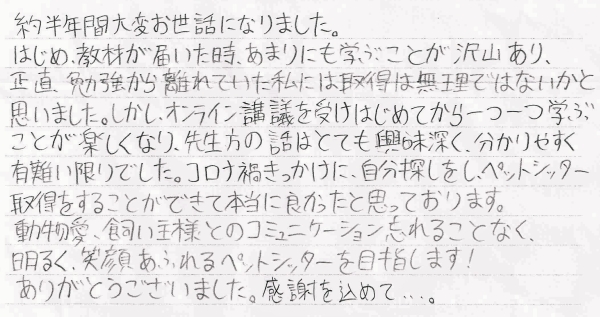 約半年間大変お世話になりました。
はじめ、教材が届いた時、あまりにも学ぶことが沢山あり、
正直、勉強から離れていた私には取得は無理ではないかと
思いました。しかし、オンライン講議を受けはじめてから一つ一つ学ぶ
ことが楽しくなり、先生方の話はとても興味深く、分かりやすく
有難い限りでした。コロナ禍きっかけに、自分探しをし、ペットシッター
取得をすることができて本当に良かったと思っております。
動物愛、飼い主様とのコミュニケーション忘れることなく、
明るく、笑顔あふれるペットシッターを目指します!
ありがとうございました。感謝を込めて…。